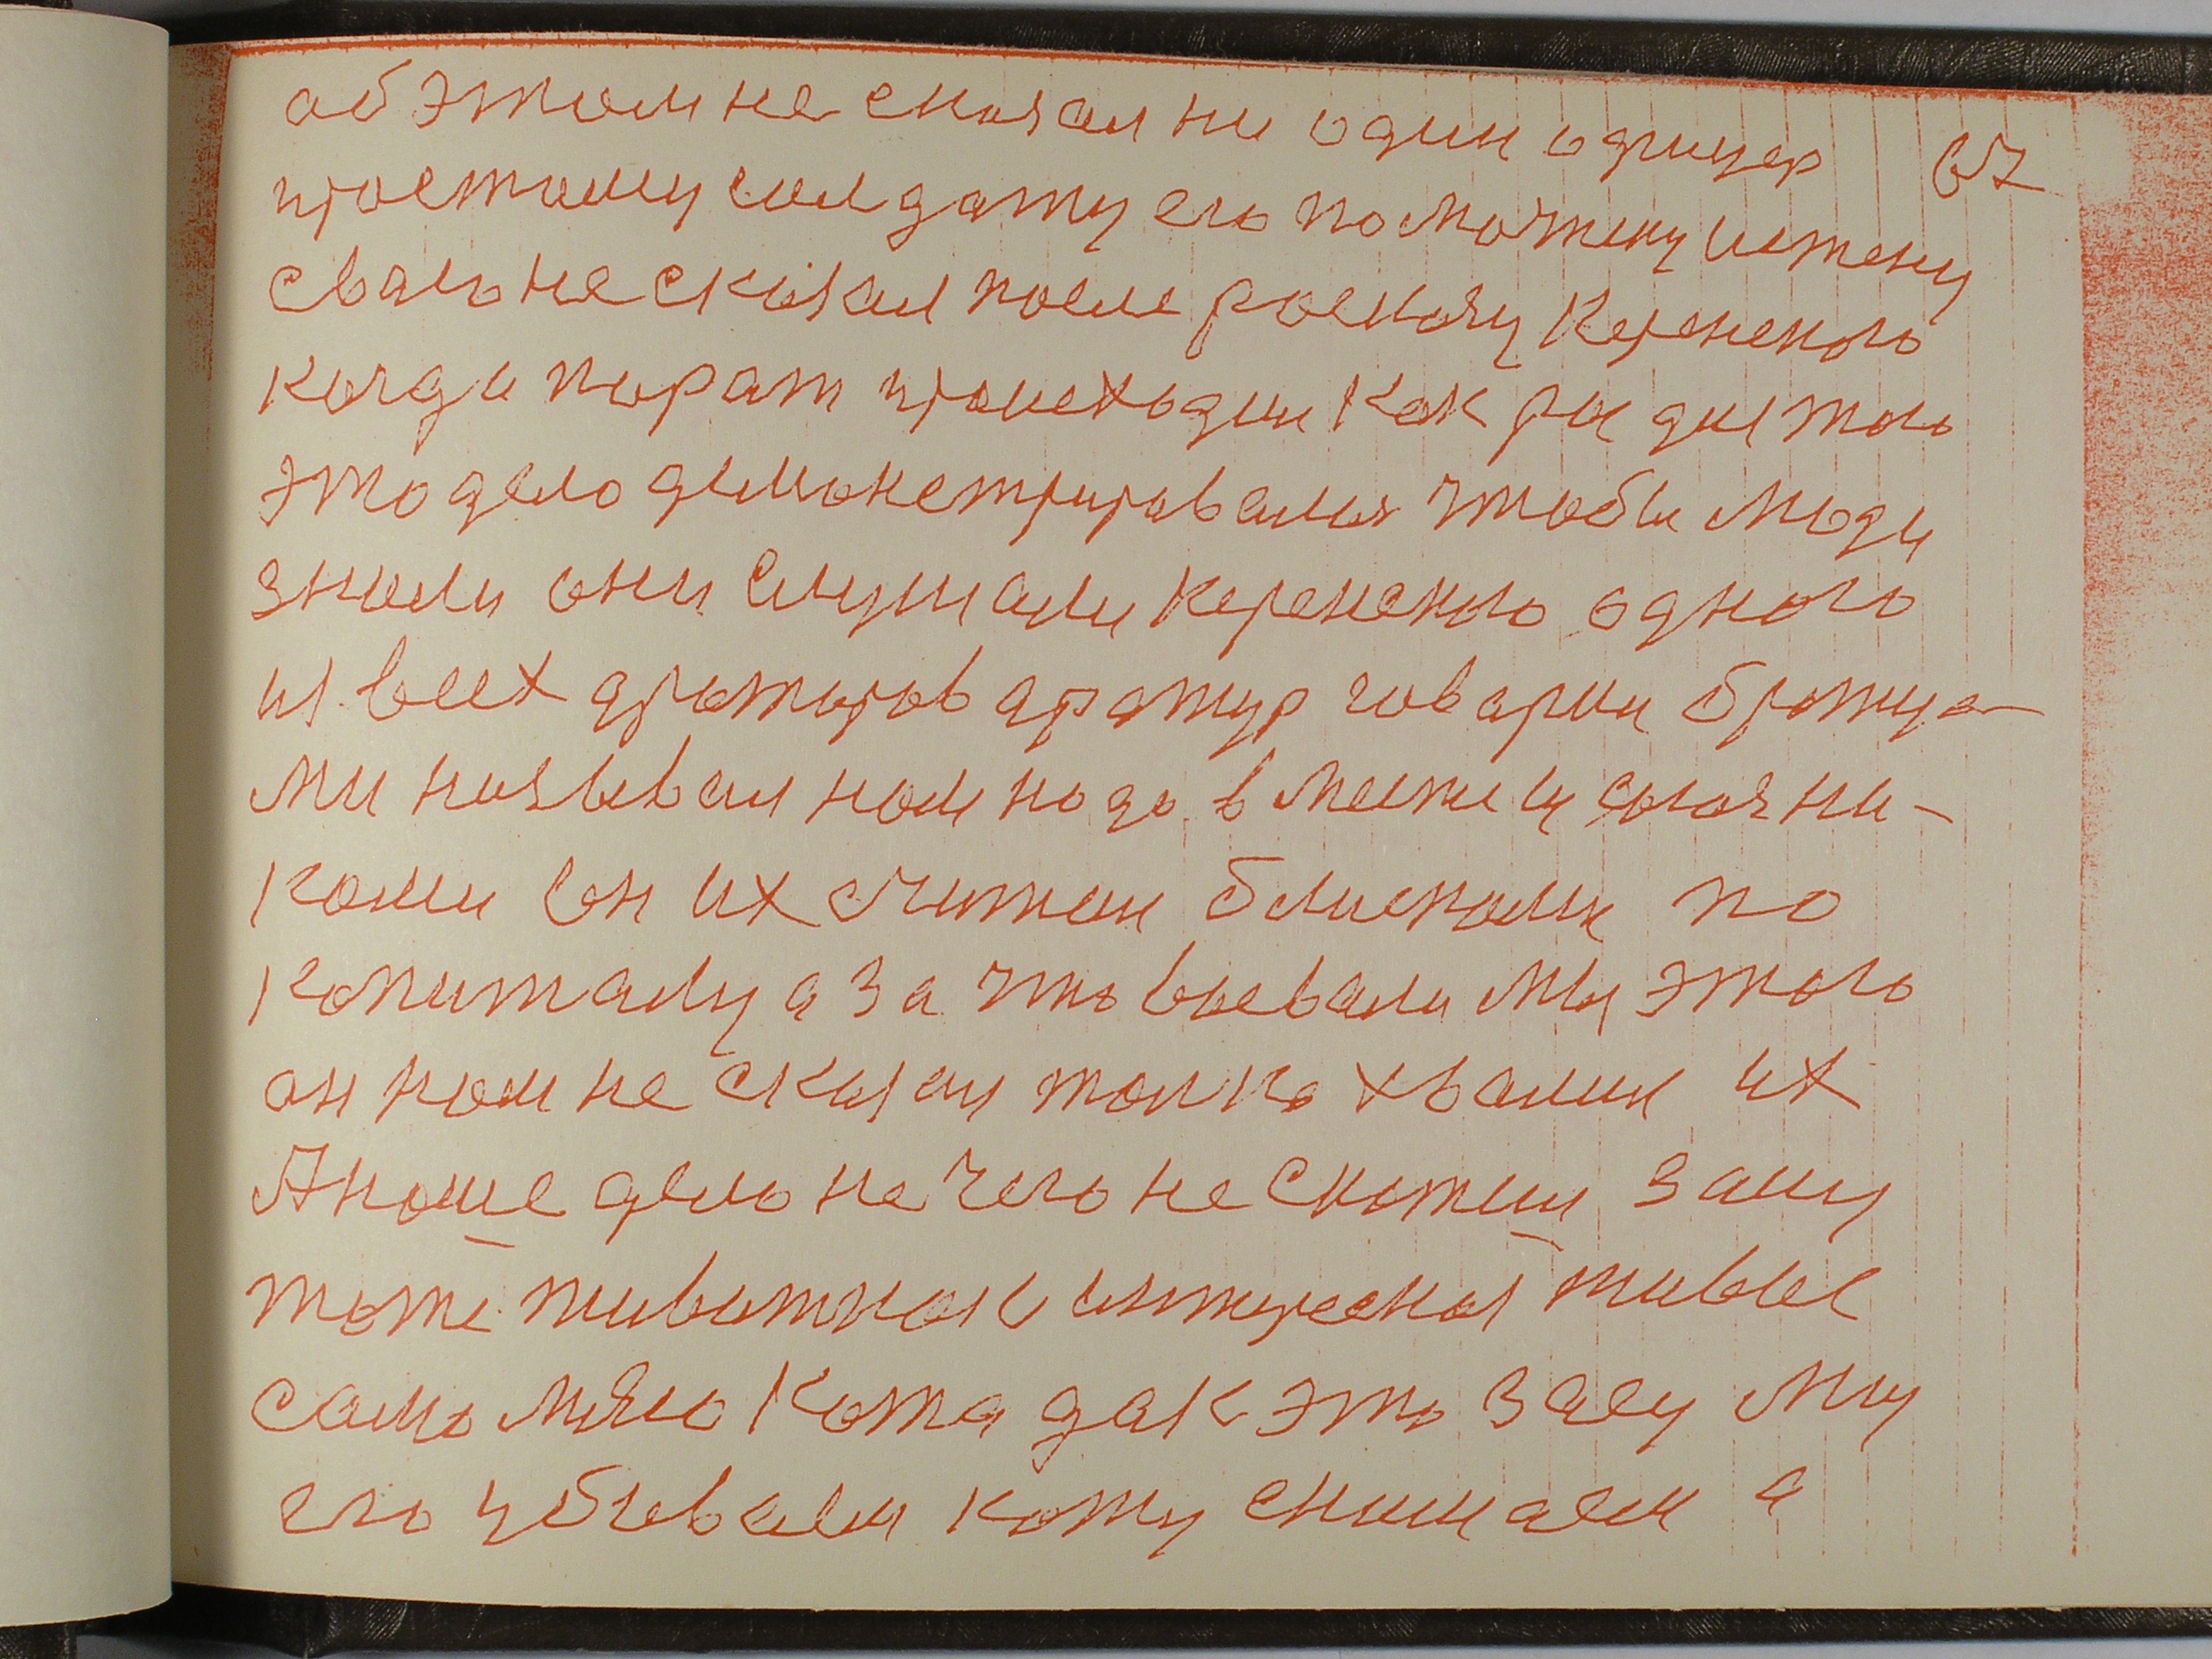 аб этом не сказал ни один офицер 67
простому салдату его поможену истену
сваго не сказал после росказу Керенского
когда парат происходил как раз для того
это дело демонстрировалися чтобы люди
знали они слушали Керенского одного
из всех аратаров аратур говарил братца-
ми называл нам надо вместе с союзни-
коми он их считал блискими по
капиталу а за что воевали мы этого
он нам не сказал толко хвалил их
А наше дело нечего не скотии зачу
тоже животнае интересная живые
само мясо кожа дак это засу мы
его убевали кожу снимали а